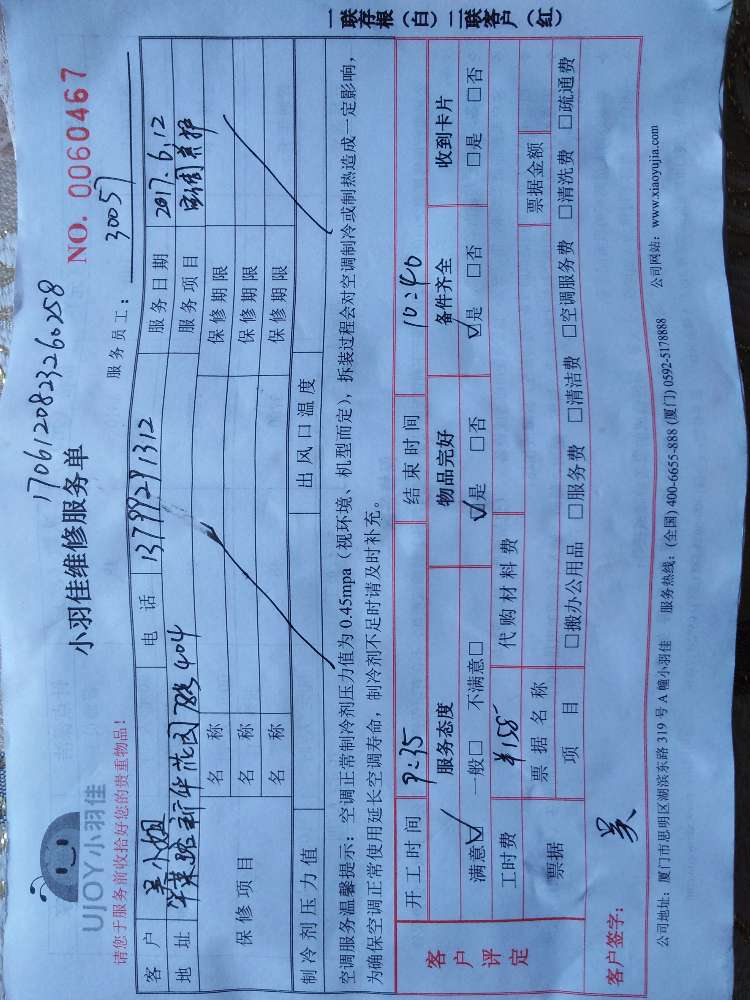 1706120823260258
UJOY小羽佳
小羽佳维修服务单
NO. 0060467
请您于服务前收拾好您的贵重物品！
服务员工： 30057
客户 吴小姐 电话 13799291312 服务日期 2017.6.12
地址 新华花园 404 服务项目 养护
保修项目 名称 保修期限
名称 保修期限
名称 保修期限
制冷剂压力值 出风口温度
空调服务温馨提示：空调正常制冷剂压力值为 0.45mpa（视环境、机型而定），拆装过程会对空调制冷或制热造成一定影响，
为确保空调正常使用延长空调寿命，制冷剂不足时请及时补充。
客户评定
开工时间 9:35 结束时间 10:40
服务态度 物品完好 备件齐全 收到卡片
满意☑ 一般□ 不满意□ ☑是 □否 ☑是 □否 □是 □否
工时费 ¥158 代购材料费
票据 票据名称 票据金额
项目 □搬办公用品 □服务费 □清洁费 □空调服务费 □清洗费 □疏通费
客户签字： 吴
公司地址：厦门市思明区湖滨东路 319 号 A 幢小羽佳 服务热线：(全国) 400-6655-888 (厦门) 0592-5178888 公司网站：www.xiaoyujia.com
一联存根（白）二联客户（红）